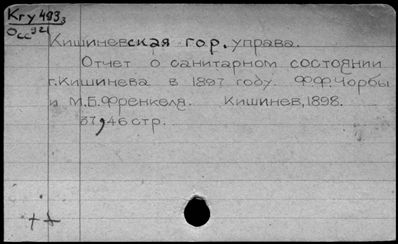 Kry 493
Кишиневская гор. управа.
Отчет о санитарном состоянии
г.Кишинева в 1897 году. Ф.Ф.Чорбы
и М.Б.Френкеля. Кишинев, 1898.
37, 46 стр.